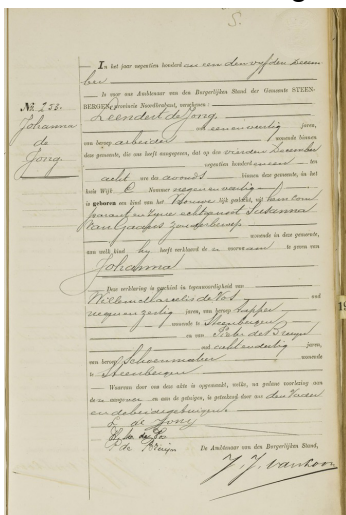 S.
In het jaar negentien honderd en een den vyfden Decem
ber
is voor ons Ambtenaar van den Burgerlijken Stand der Gemeente STEEN-
BERGEN, Provincie Noordbrabant, verschenen:
Leendert de Jong
oud een en veertig jaren,
van beroep arbeider wonende binnen
deze gemeente, die ons heeft aangegeven, dat op den vierden December
negentien honderd een ten
acht ure des avonds binnen deze gemeente, in het
huis Wijk C Nummer negen en veertig
is geboren een kind van het Vrouwelijk geslacht, uit hem com
parant en zyne echtgenoot Susanna
van Gaalen zonder beroep
wonende in deze gemeente,
aan welk kind hy heeft verklaard de voornaam te geven van
Johanna
Deze verklaring is geschied in tegenwoordigheid van
Willem Marcelis de Vos oud
negen en zestig jaren, van beroep tapper
wonende te Steenbergen
en van Pieter de Bruyn
oud acht en dertig jaren,
van beroep Schoenmaker wonende
te Steenbergen
Waarvan door ons deze akte is opgemaakt, welke, na gedane voorlezing aan
de aangever en aan de getuigen, is geteekend door ons dien Vader
en de beide getuigen
L. de Jong
W. M. de Vos
P. de Bruijn
De Ambtenaar van den Burgerlijken Stand,
J. J. van Loon
No. 253.
Johanna
de
Jong
19